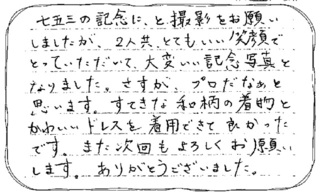 七五三の記念に、と撮影をお願い
しましたが、2人共、とてもいい笑顔で
とっていただいて、大変いい記念写真と
なりました。さすが、プロだなぁと
思います。すてきな和柄の着物と
かわいいドレスを着用できて良かった
です。また次回もよろしくお願い
します。ありがとうございました。